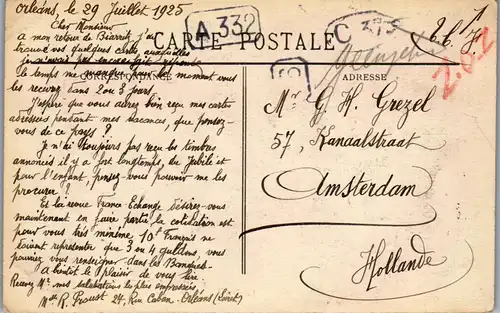 Orléans le 29 Juillet 1925
A 332
C 375
CARTE POSTALE
CORRESPONDANCE
ADRESSE
Cher Monsieur
a mon retour de Biarritz j'ai
trouvé vos quelques cartes auxquelles
je n'avais pas encore fait réponse
le temps me manque pour le moment vous
les recevez dans 2 ou 3 jours.
J'espère que vous aurez bien reçu mes cartes
adressées pendant mes vacances, que pensez-
vous de ce pays ?
Je n'ai toujours pas reçu les timbres
annoncés il y a fort longtemps, du Jubilé et
pour l'enfant, pensez-vous pouvoir me les
procurer ?
Et la revue France-Echange désirez-vous
maintenant en faire partie la cotisation est
pour vous très minime 10f Français ne
doivent représenter que 3 ou 4 guldens, vous
pourriez vous renseigner dans les Banques.
a bientôt le plaisir de vous lire.
Recevez Mr. mes salutations les plus empressées
R. Proust 24, Rue Caban. Orléans (Loiret)
Mr. G. H. Grezel
57, Kanaalstraat
Amsterdam
Hollande